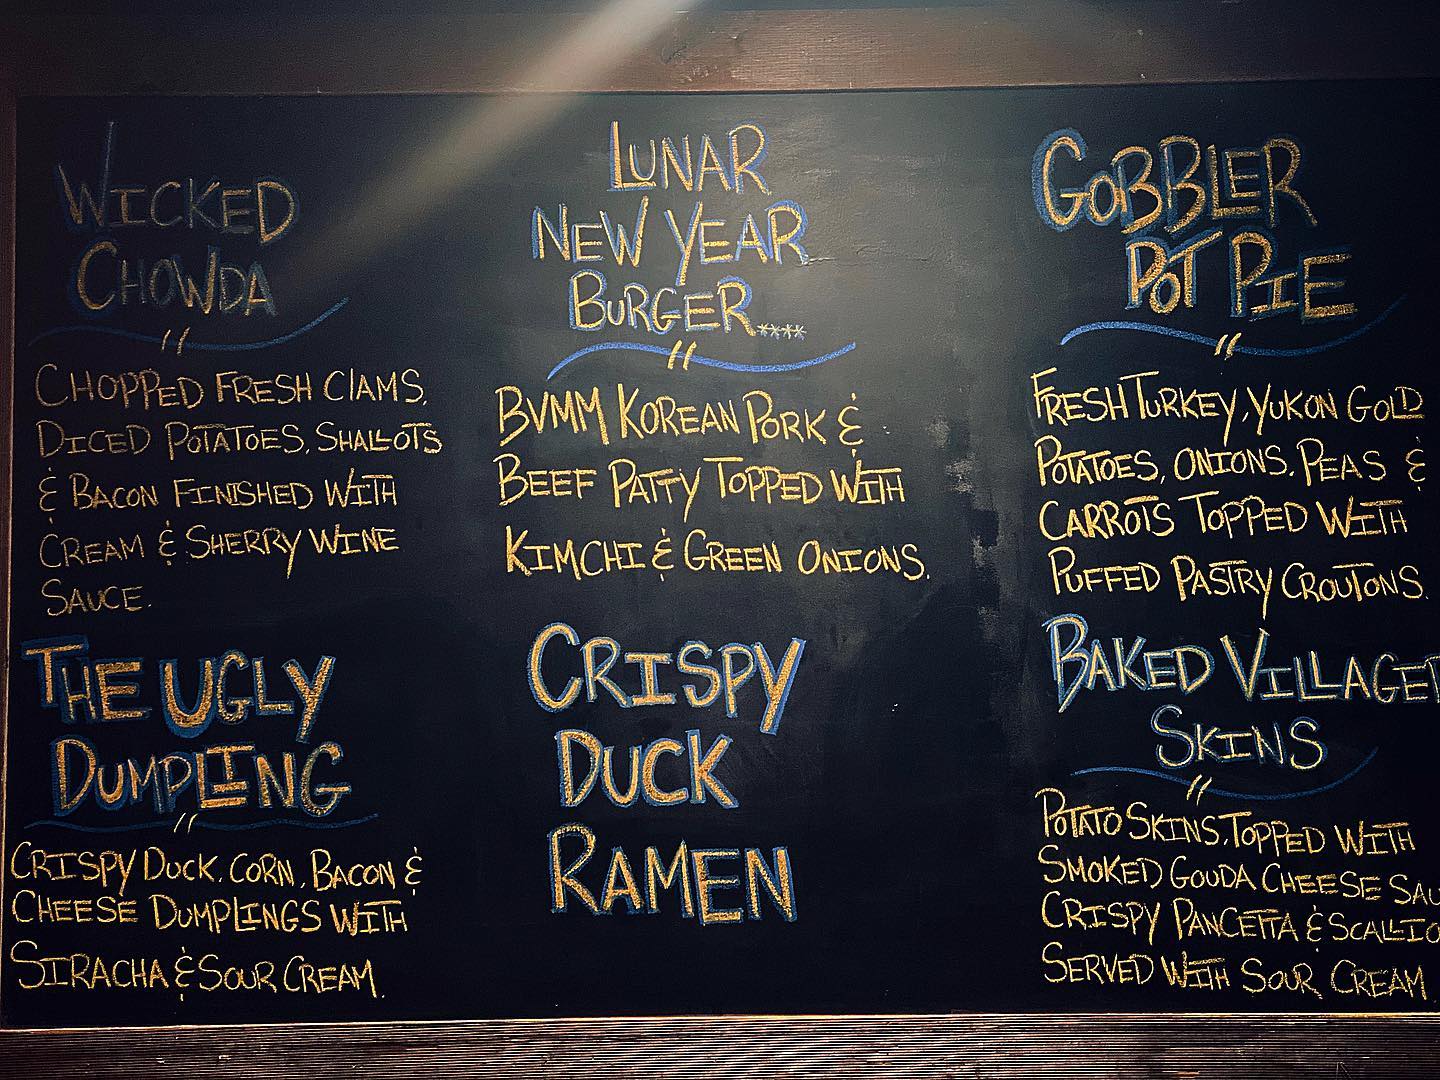 WICKED
CHOWDA
CHOPPED FRESH CLAMS,
DICED POTATOES, SHALLOTS
& BACON FINISHED WITH
CREAM & SHERRY WINE
SAUCE.
THE UGLY
DUMPLING
CRISPY DUCK, CORN, BACON &
CHEESE DUMPLINGS WITH
SIRACHA & SOUR CREAM.
LUNAR
NEW YEAR
BURGER....
BVMM KOREAN PORK &
BEEF PATTY TOPPED WITH
KIMCHI & GREEN ONIONS.
CRISPY
DUCK
RAMEN
GOBBLER
POT PIE
FRESH TURKEY, YUKON GOLD
POTATOES, ONIONS, PEAS &
CARROTS TOPPED WITH
PUFFED PASTRY CROUTONS.
BAKED VILLAGER
SKINS
POTATO SKINS, TOPPED WITH
SMOKED GOUDA CHEESE SAU
CRISPY PANCETTA & SCALLIO
SERVED WITH SOUR CREAM